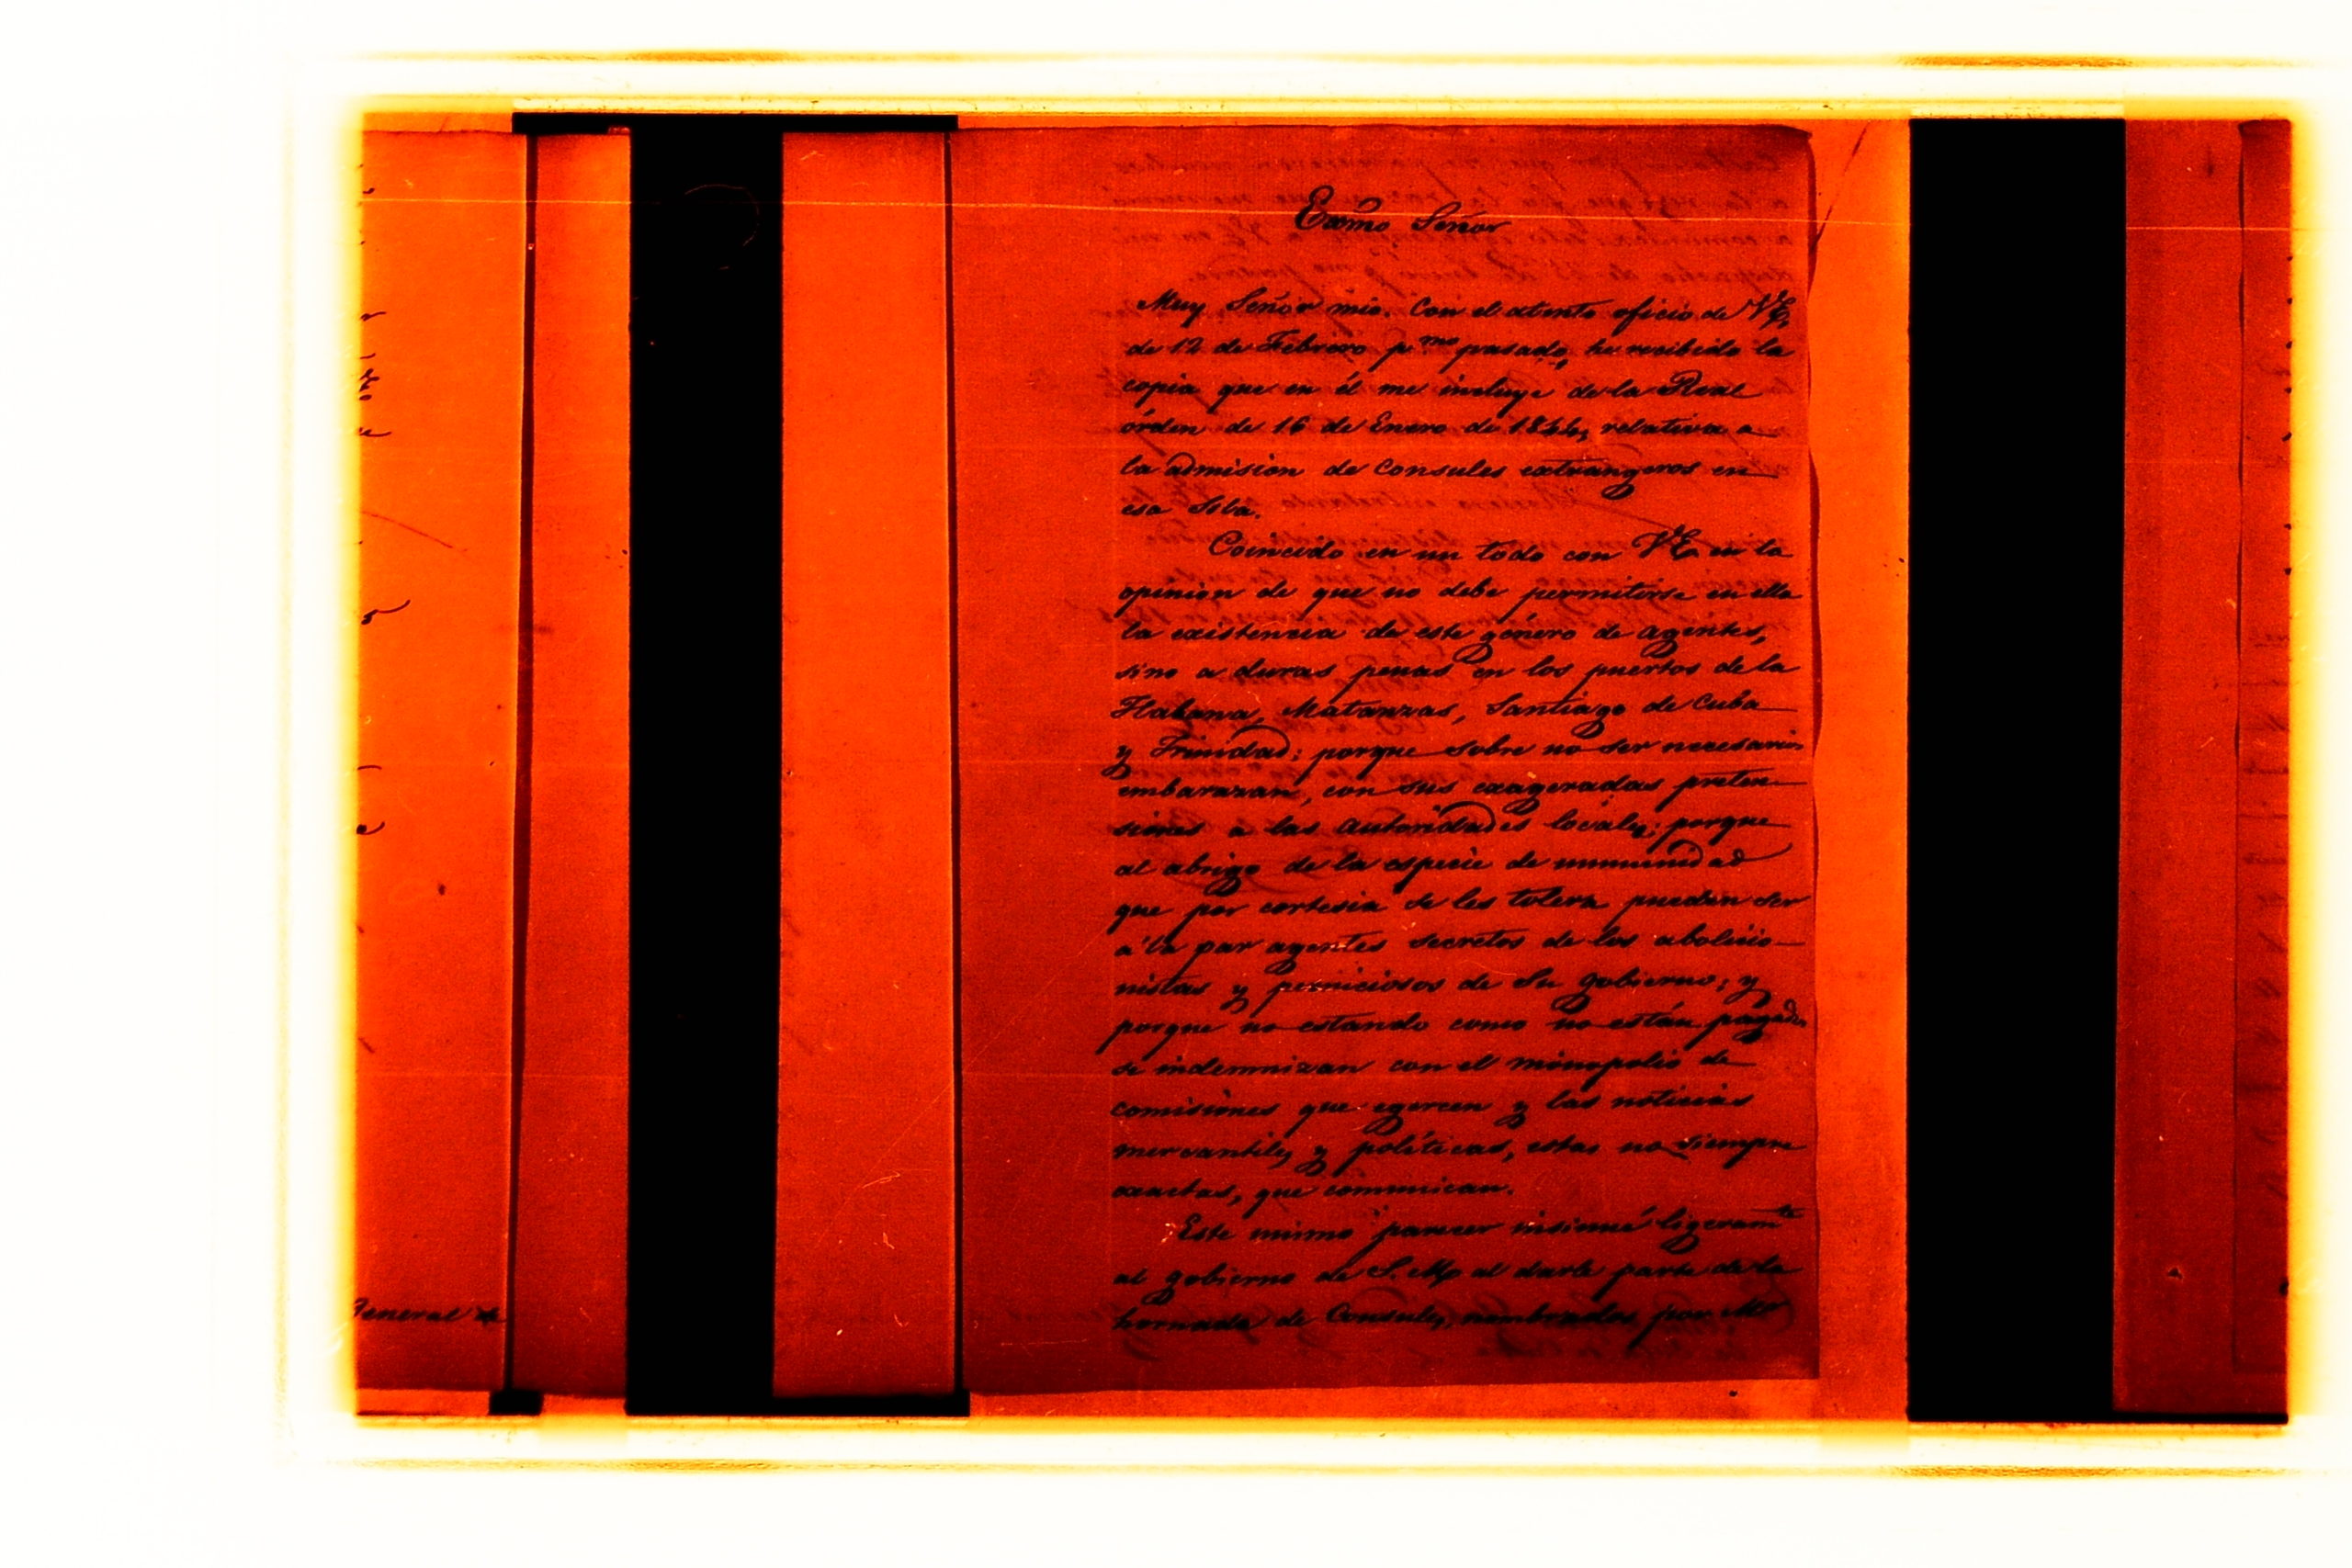 General de
Exmo Señor
Muy Señor mio. Con el atento oficio de VE,
de 12 de Febrero p.mo pasado, he recibido la
copia que en él me incluye de la Real
órden de 16 de Enero de 1844, relativa a
la admision de Consules extrangeros en
esa Isla.
Coincido en un todo con VE en la
opinion de que no debe permitirse en ella
la existencia de este género de agentes,
sino a duras penas en los puertos de la
Habana, Matanzas, Santiago de Cuba
y Trinidad; porque sobre no ser necesarios
embarazan, con sus exageradas preten
siones a las Autoridades locales; porque
al abrigo de la especie de inmunidad
que por cortesia se les tolera pueden ser
a la par agentes secretos de los abolicio-
nistas y perniciosos de su gobierno; y
porque no estando como no están pagados
se indemnizan con el monopolio de
comisiones que egercen y las noticias
mercantiles y políticas, estas no siempre
exactas, que comunican.
Este mismo parecer insinué ligeramte
al gobierno de S. M. al darle parte de la
hornada de Consules, nombrados por Mr